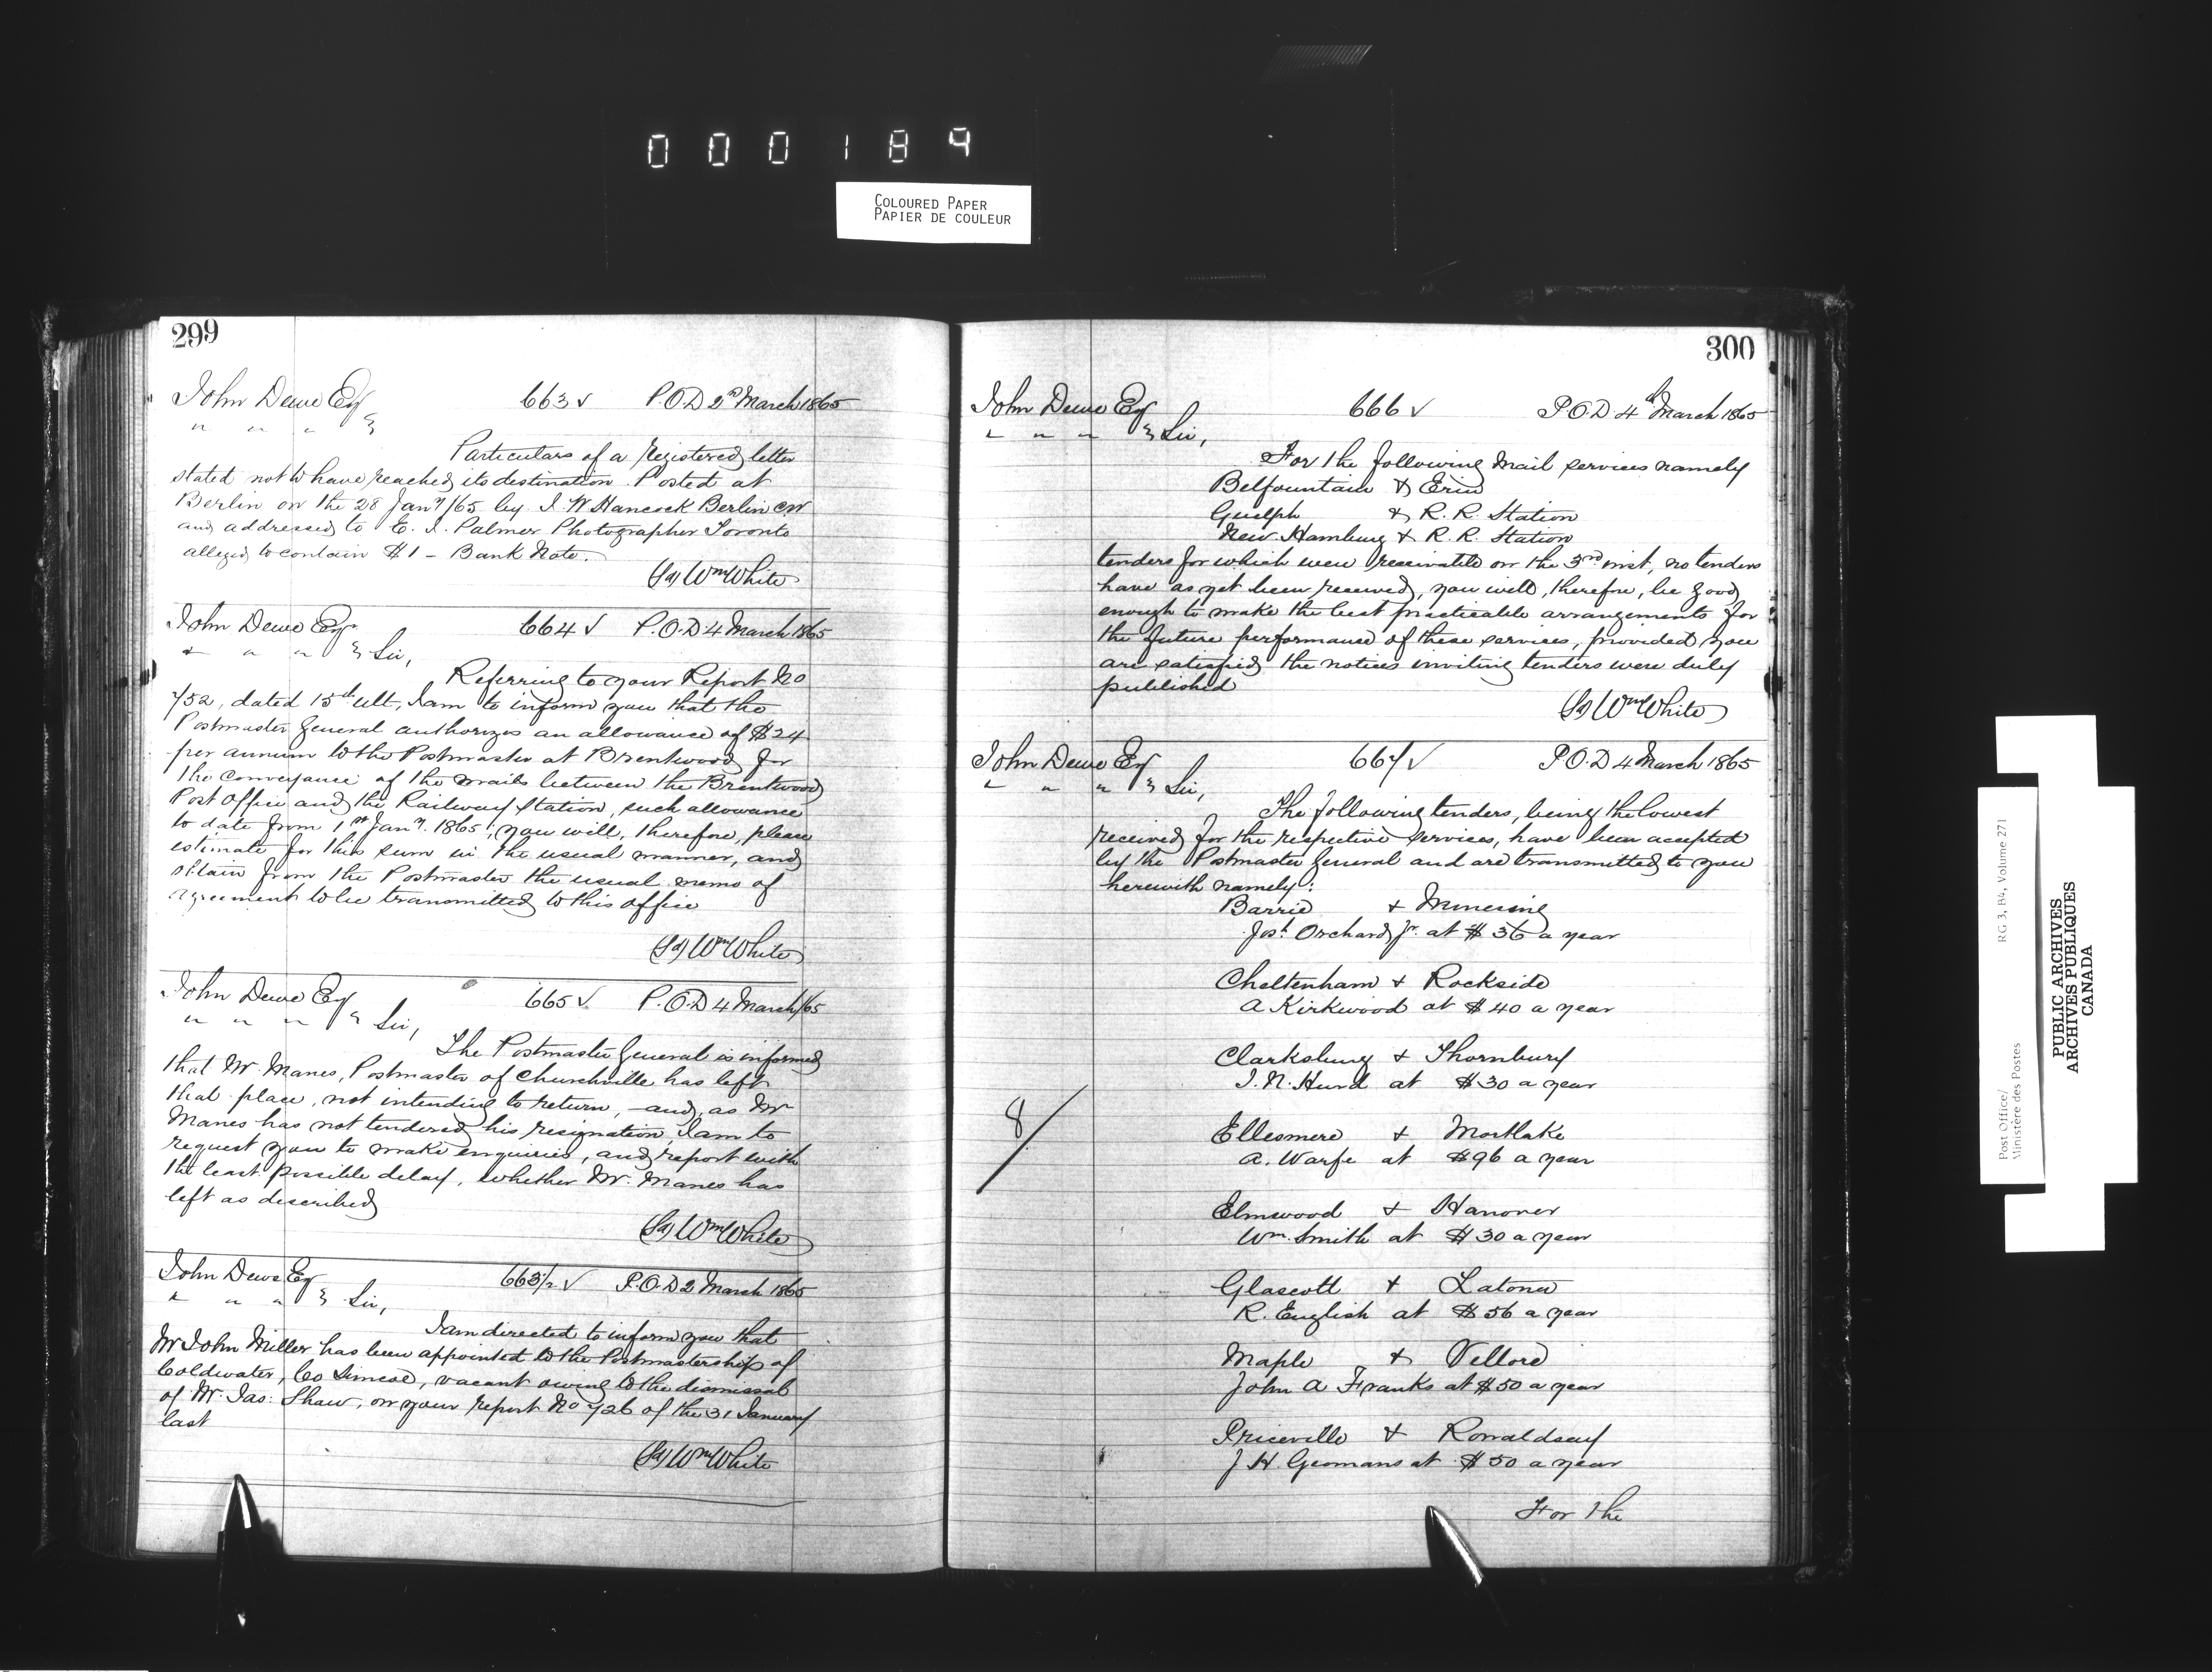 000189
COLOURED PAPER
PAPIER DE COULEUR
299
John Dewe Esq 663 √ P.O.D 2nd March 1865
" " "
Particulars of a registered letter
stated not to have reached its destination. Posted at
Berlin on the 28 Jany/65 by J. W. Hancock Berlin CW
and addressed to E. J. Palmer Photographer Toronto
alleged to contain $1 - Bank Note.
(Sd) Wm White
John Dewe Esqr 664 √ P.O.D. 4 March 1865
" " " Sir,
Referring to your Report No
752, dated 15th ult, I am to inform you that the
Postmaster General authorizes an allowance of $24
per annum to the Postmaster at Brentwood for
the conveyance of the mails between the Brentwood
Post Office and the Railway Station, such allowance
to date from 1st Jany. 1865, you will, therefore, please
estimate for this sum in the usual manner, and
obtain from the Postmaster the usual memo of
agreement to be transmitted to this office
(Sd) Wm White
John Dewe Esq 665 √ P.O.D 4 March/65
" " " Sir,
The Postmaster General is informed
that Mr Manes, Postmaster of Churchville has left
that place, not intending to return, - and, as Mr
Manes has not tendered his resignation, I am to
request you to make enquiries, and report with
the least possible delay, whether Mr. Manes has
left as described
(Sd) Wm White
John Dewe Esq 663½ √ P.O.D 2 March 1865
" " " Sir,
I am directed to inform you that
Mr John Miller has been appointed to the Postmastership of
Coldwater, Co Simcoe, vacant owing to the dismissal
of Mr. Jas: Shaw, on your report No 726 of the 31 January
last
(Sd) Wm White
300
John Dewe Esq 666 √ P.O.D. 4th March 1865
" " " Sir,
For the following mail services namely
Belfountain & Erin
Guelph & R. R. Station
New Hamburg & R. R. Station
tenders for which were receivable on the 3rd inst, no tenders
have as yet been received, you will, therefore, be good
enough to make the best practicable arrangements for
the future performance of these services, provided you
are satisfied the notices inviting tenders were duly
published
(Sd) Wm White
John Dewe Esq 667 √ P.O.D 4 March 1865
" " " Sir,
The following tenders, being the lowest
received for the respective services, have been accepted
by the Postmaster General and are transmitted to you
herewith namely:
Barrie & Minesing
Josh Orchard Jr. at $36 a year
Cheltenham & Rockside
A Kirkwood at $40 a year
Clarksburg & Thornbury
T. N. Hurd at $30 a year
8/
Ellesmere & Mortlake
A. Warfe at $96 a year
Elmwood & Hanover
Wm. Smith at $30 a year
Glascott & Latona
R. English at $56 a year
Maple & Vellore
John A Franks at $50 a year
Priceville & Ronaldsay
J H. Geomans at $50 a year
For the
Post Office/ RG 3, B4, Volume 271
Ministère des Postes
PUBLIC ARCHIVES
ARCHIVES PUBLIQUES
CANADA